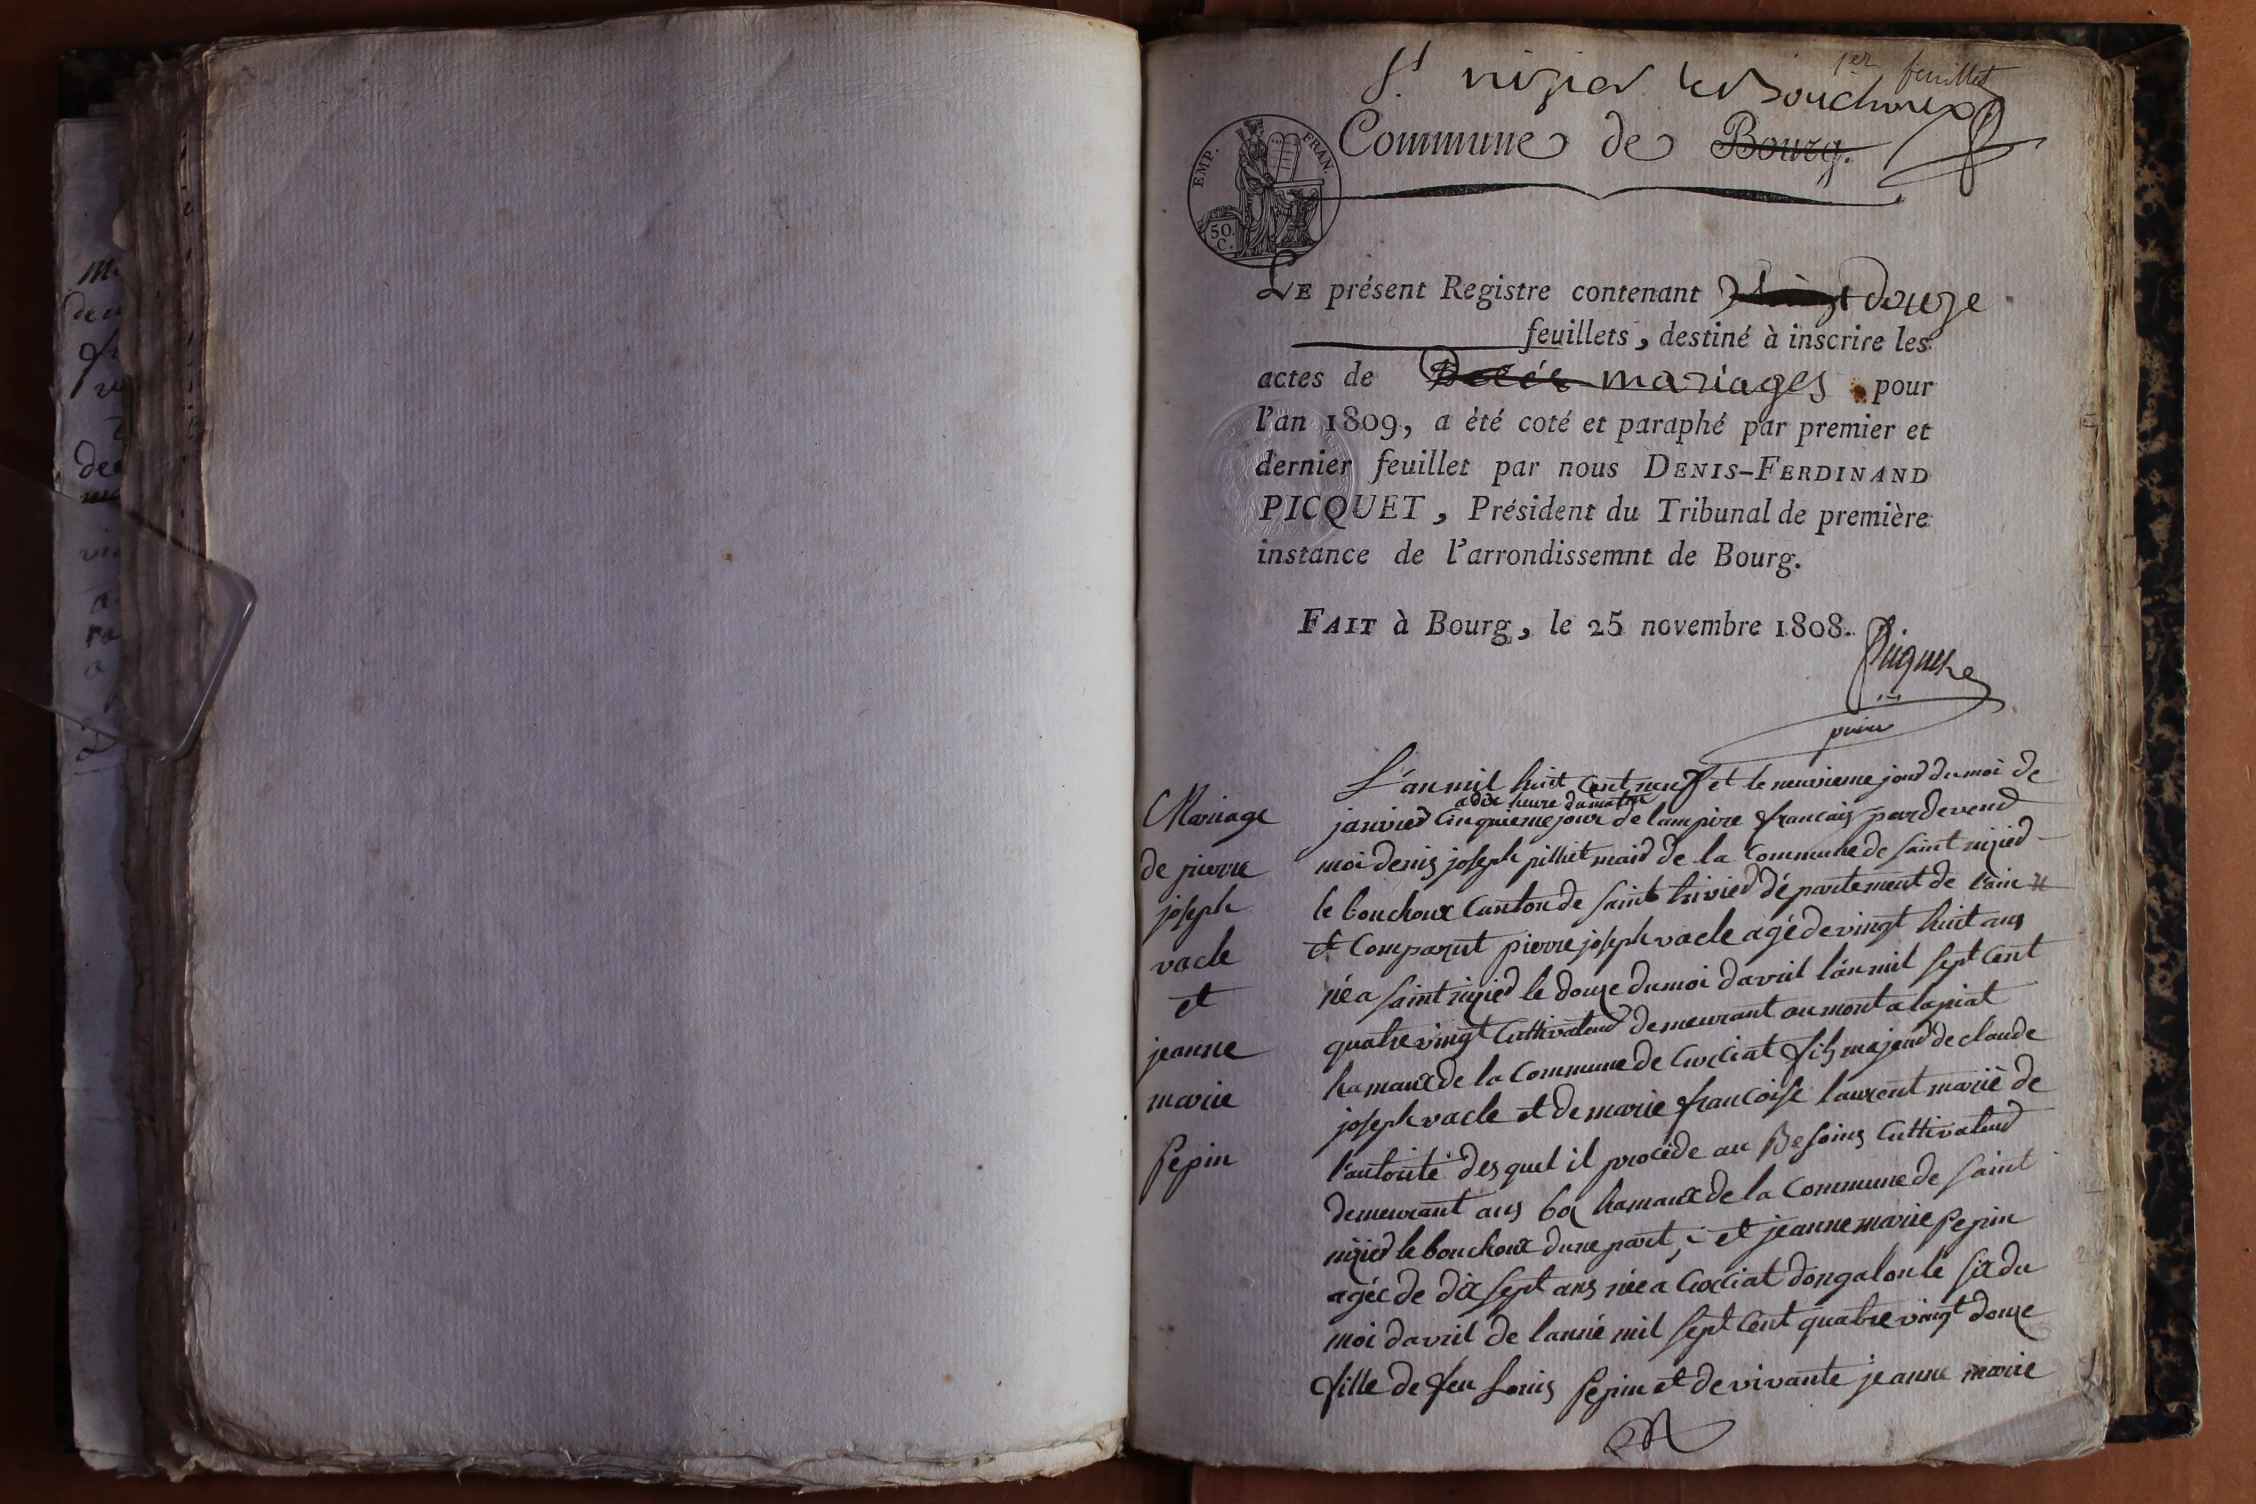 1er feuillet
St nizier le Bouchoux
Commune de Bourg.
EMP. FRAN.
50. C.
LE présent Registre contenant douze
feuillets, destiné à inscrire les
actes de mariages pour
l'an 1809, a été coté et paraphé par premier et
dernier feuillet par nous DENIS-FERDINAND
PICQUET, Président du Tribunal de première
instance de l'arrondissemnt de Bourg.
FAIT à Bourg, le 25 novembre 1808.
Picquet
Mariage
de pierre
joseph
vacle
et
jeanne
marie
pepin
L'an mil huit cent neuf et le neuvieme jour du moi de
a dix heure du matin
janvier cinquieme jour de lampire francais pardevend
moi denis joseph pilliet mair de la commune de saint nizier
le bouchoux canton de saint trivier département de l'ain
et comparut pierre joseph vacle agé de vingt huit ans
né a saint nizier le douze du moi davril l'an mil sept cent
quatre vingt cultivateur demeurant au mont a lapiat
hamaux de la commune de curciat fils majeur de claude
joseph vacle et de marie francoise laurent marié de
l'autorité desquel il procéde au Besoins cultivateur
demeurant aus boi hamaux de la commune de saint
nizier le bouchoux dune part, et jeanne marie pepin
agée de dix sept ans née a curciat dongalon le six du
moi davril de lanné mil sept cent quatre vingt douze
fille de feu louis pepin et de vivante jeanne marie